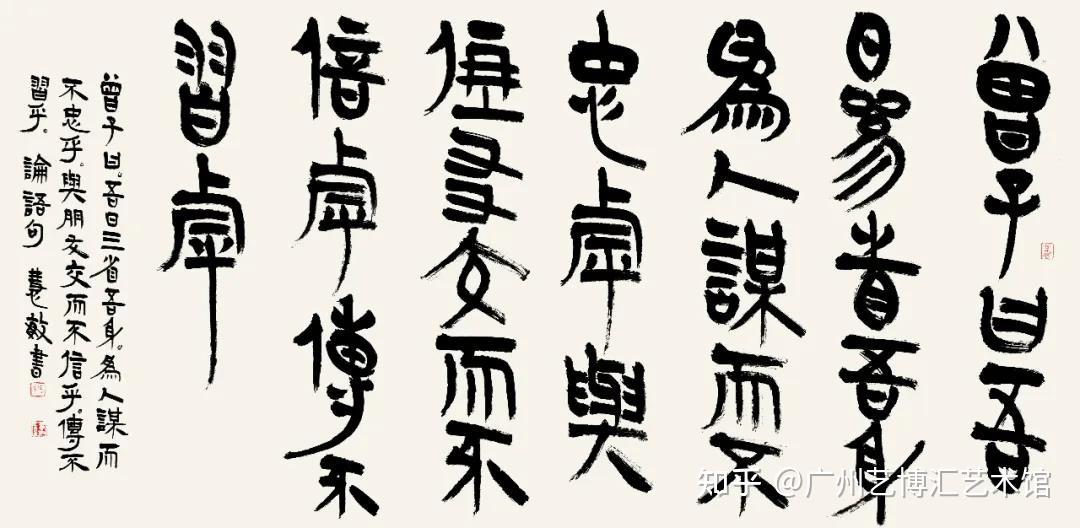 曾子曰吾
日參省吾身
為人謀而不
忠虖與
倗友交而不
信虖傳不
習虖
曾子曰。吾日三省吾身。為人謀而
不忠乎。與朋友交而不信乎。傳不
習乎。論語句 書
知乎 @广州艺博汇艺术馆